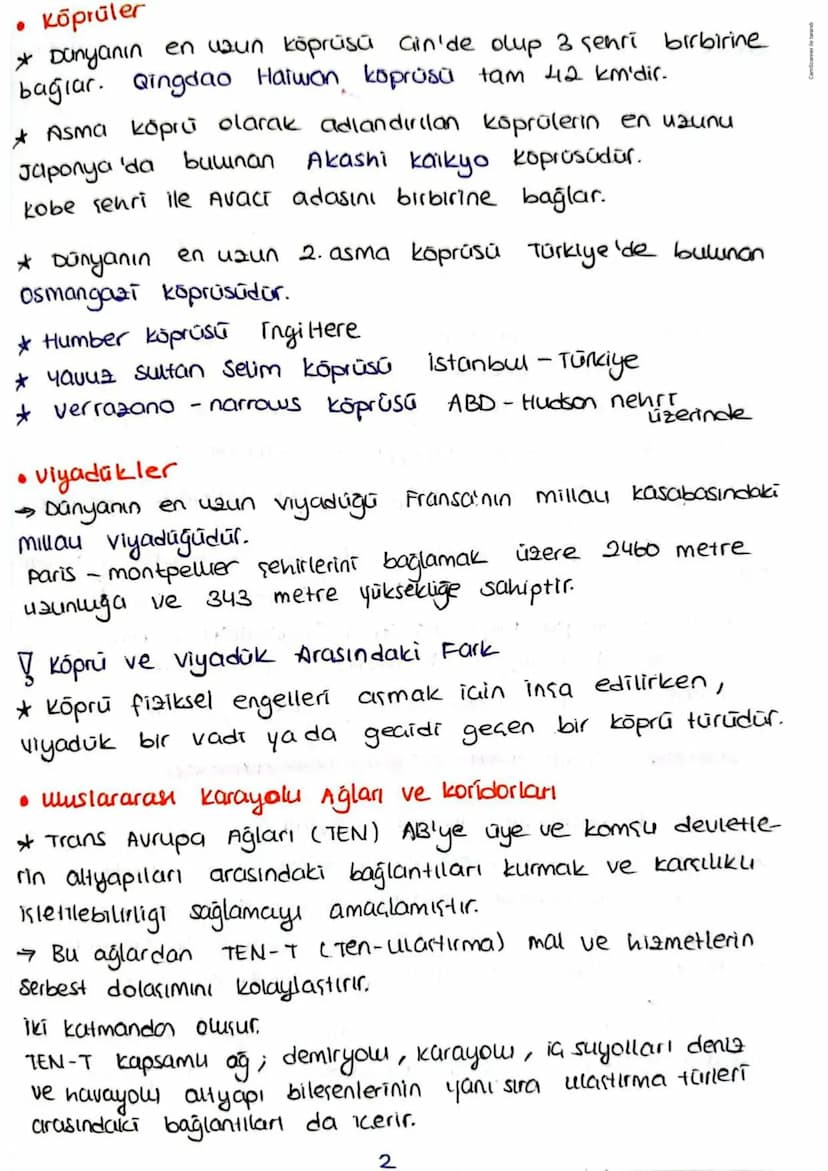 • Köprüler
* Dünyanın en uzun köprüsü Çin'de olup 3 şehri birbirine
bağlar. Qingdao Haiwan köprüsü tam 42 km'dir.
* Asma köprü olarak adlandırılan köprülerin en uzunu
Japonya'da bulunan Akashi Kaikyo köprüsüdür.
Kobe şehri ile Avaci adasını birbirine bağlar.
* Dünyanın en uzun 2. asma köprüsü Türkiye'de bulunan
Osmangazi köprüsüdür.
* Humber köprüsü İngiltere
* Yavuz Sultan Selim köprüsü İstanbul - Türkiye
* Verrazano - narrows köprüsü ABD - Hudson nehri
üzerinde
• Viyadükler
→ Dünyanın en uzun viyadüğü Fransa'nın millau kasabasındaki
millau viyadüğüdür.
Paris - montpellier şehirlerini bağlamak üzere 2460 metre
uzunluğa ve 343 metre yüksekliğe sahiptir.
! Köprü ve Viyadük Arasındaki Fark
* Köprü fiziksel engelleri aşmak için inşa edilirken,
viyadük bir vadi ya da geçidi geçen bir köprü türüdür.
• Uluslararası Karayolu Ağları ve Koridorları
* Trans Avrupa Ağları (TEN) AB'ye üye ve komşu devletle-
rin altyapıları arasındaki bağlantıları kurmak ve karşılıklı
işletilebilirliği sağlamayı amaçlamıştır.
→ Bu ağlardan TEN-T (Ten-ulaştırma) mal ve hizmetlerin
serbest dolaşımını kolaylaştırır.
İki katmandan oluşur.
TEN-T kapsamlı ağ; demiryolu, karayolu, iç suyolları deniz
ve havayolu altyapı bileşenlerinin yanı sıra ulaştırma türleri
arasındaki bağlantıları da içerir.
2
CamScanner ile tarandı